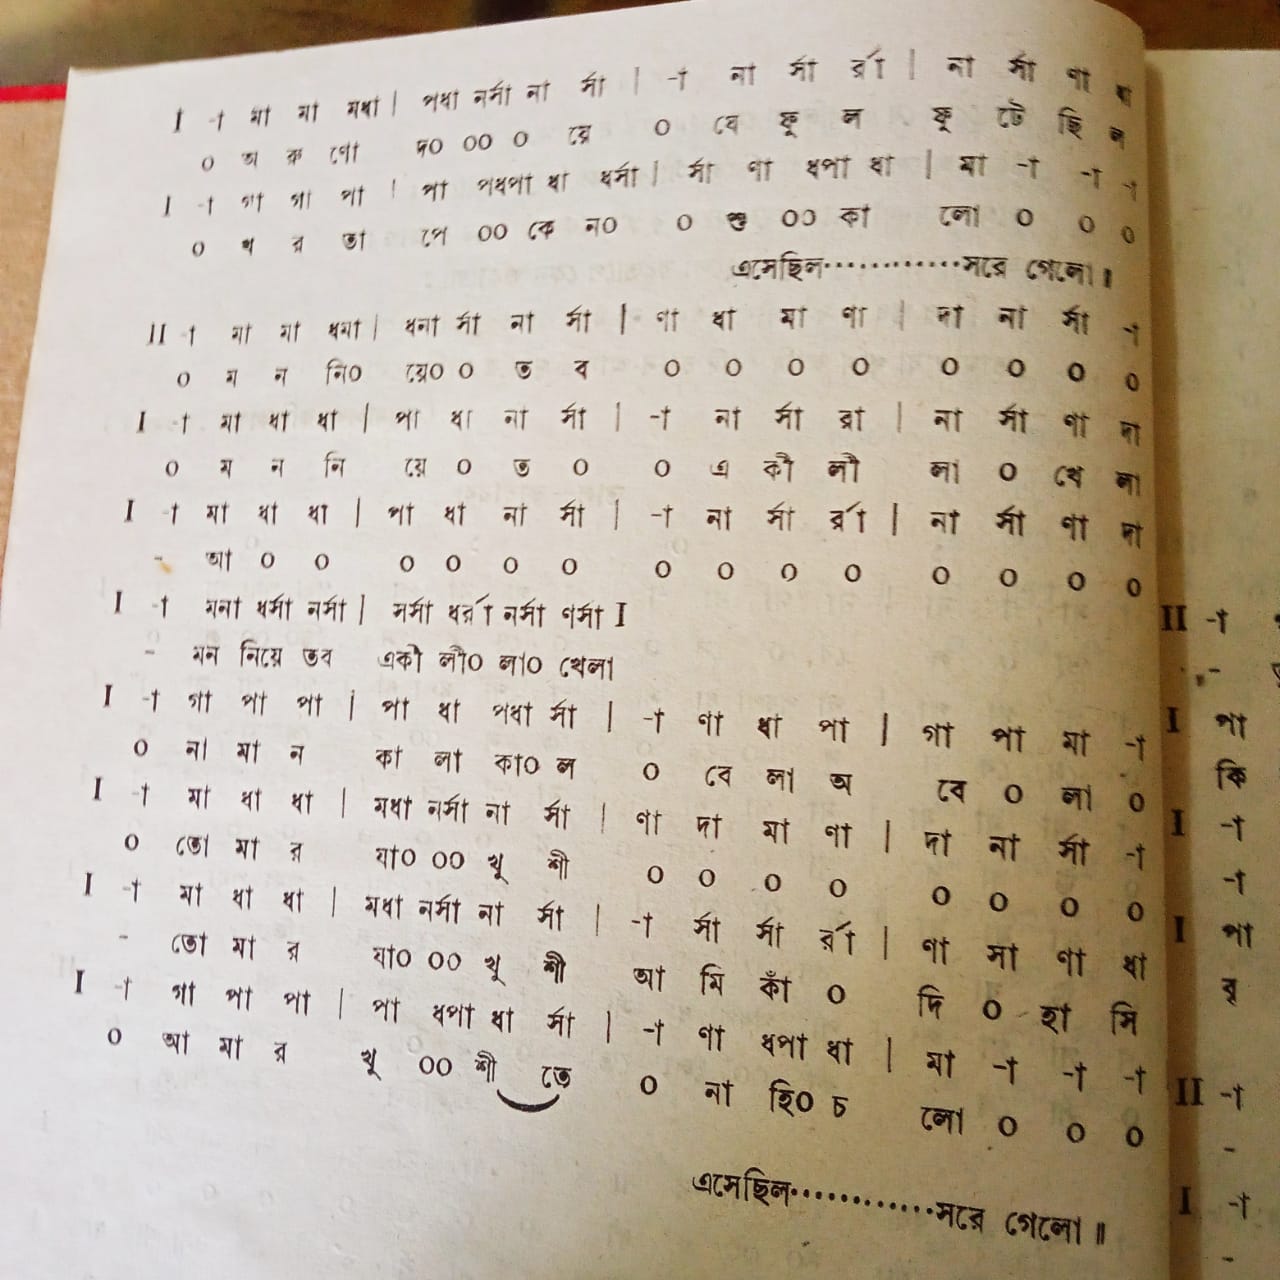 I -া মা মা মধা | পধা নর্সা না র্সা | -া না র্সা র্রা | না র্সা ণা ধা
০ অ রু ণো দ০ ০০ ০ য়ে ০ যে ফু ল ফু টে ছি ল
I -া গা গা পা | পা পধপা ধা ধর্সা | র্সা ণা ধপা ধা | মা -া -া -া
০ খ র তা পে ০০ কে ন০ ০ শু ০০ কা লো ০ ০ ০
এসেছিল············সরে গেলো॥
II -া মা মা ধমা | ধনা র্সা না র্সা | ণা ধা মা ণা | দা না র্সা -া
০ ম ন নি০ য়ে০ ০ ত ব ০ ০ ০ ০ ০ ০ ০ ০
I -া মা ধা ধা | পা ধা না র্সা | -া না র্সা রা | না র্সা ণা দা
০ ম ন নি য়ে ০ ত ০ ০ এ কী লী লা ০ খে লা
I -া মা ধা ধা | পা ধা না র্সা | -া না র্সা র্রা | না র্সা ণা দা
- আ ০ ০ ০ ০ ০ ০ ০ ০ ০ ০ ০ ০ ০ ০
I -া মনা ধর্সা নর্সা | মর্সা ধর্রা নর্সা ণর্সা I
- মন নিয়ে তব একী লী০ লা০ খেলা
I -া গা পা পা | পা ধা পধা র্সা | -া ণা ধা পা | গা পা মা -া
০ না মা ন কা লা কা০ ল ০ বে লা অ বে ০ লা ০
I -া মা ধা ধা | মধা নর্সা না র্সা | ণা দা মা ণা | দা না র্সা -া
০ তো মা র যা০ ০০ খু শী ০ ০ ০ ০ ০ ০ ০ ০
I -া মা ধা ধা | মধা নর্সা না র্সা | -া র্সা র্সা র্রা | ণা সা ণা ধা
- তো মা র যা০ ০০ খু শী আ মি কাঁ ০ দি ০ হা সি
I -া গা পা পা | পা ধপা ধা র্সা | -া ণা ধপা ধা | মা -া -া -া
০ আ মা র খু ০০ শী তে ০ না হি০ চ লো ০ ০ ০
এসেছিল············সরে গেলো॥
II -া
-
I পা
কি
I -া
-া
I পা
বৃ
II -া
-
I -া
-